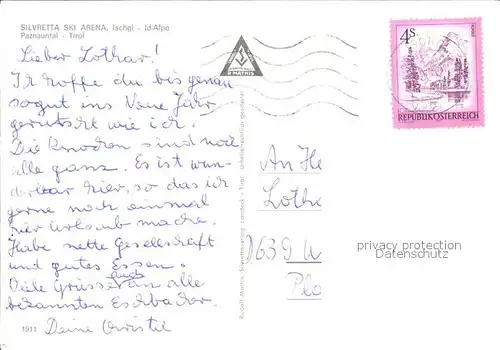 SILVRETTA SKI ARENA, Ischgl - Id-Alpe
Paznauntal - Tirol
Lieber Lothar!
Ich hoffe du bis genau
sogut ins Neue Jahr
gerutscht wie ich.
Die Knochen sind noch
alle ganz. Es ist wun-
derbar hier, so das ich
gerne noch einmal
hier Urlaub mache.
Habe nette Gesellschaft
und gutes Essen.
Viele Grüsse auch an alle
bekannten Eschbacher.
Deine Christel
1911
4S
REPUBLIK ÖSTERREICH
An He
Lotha
D639 U
Plo
privacy protection
Datenschutz